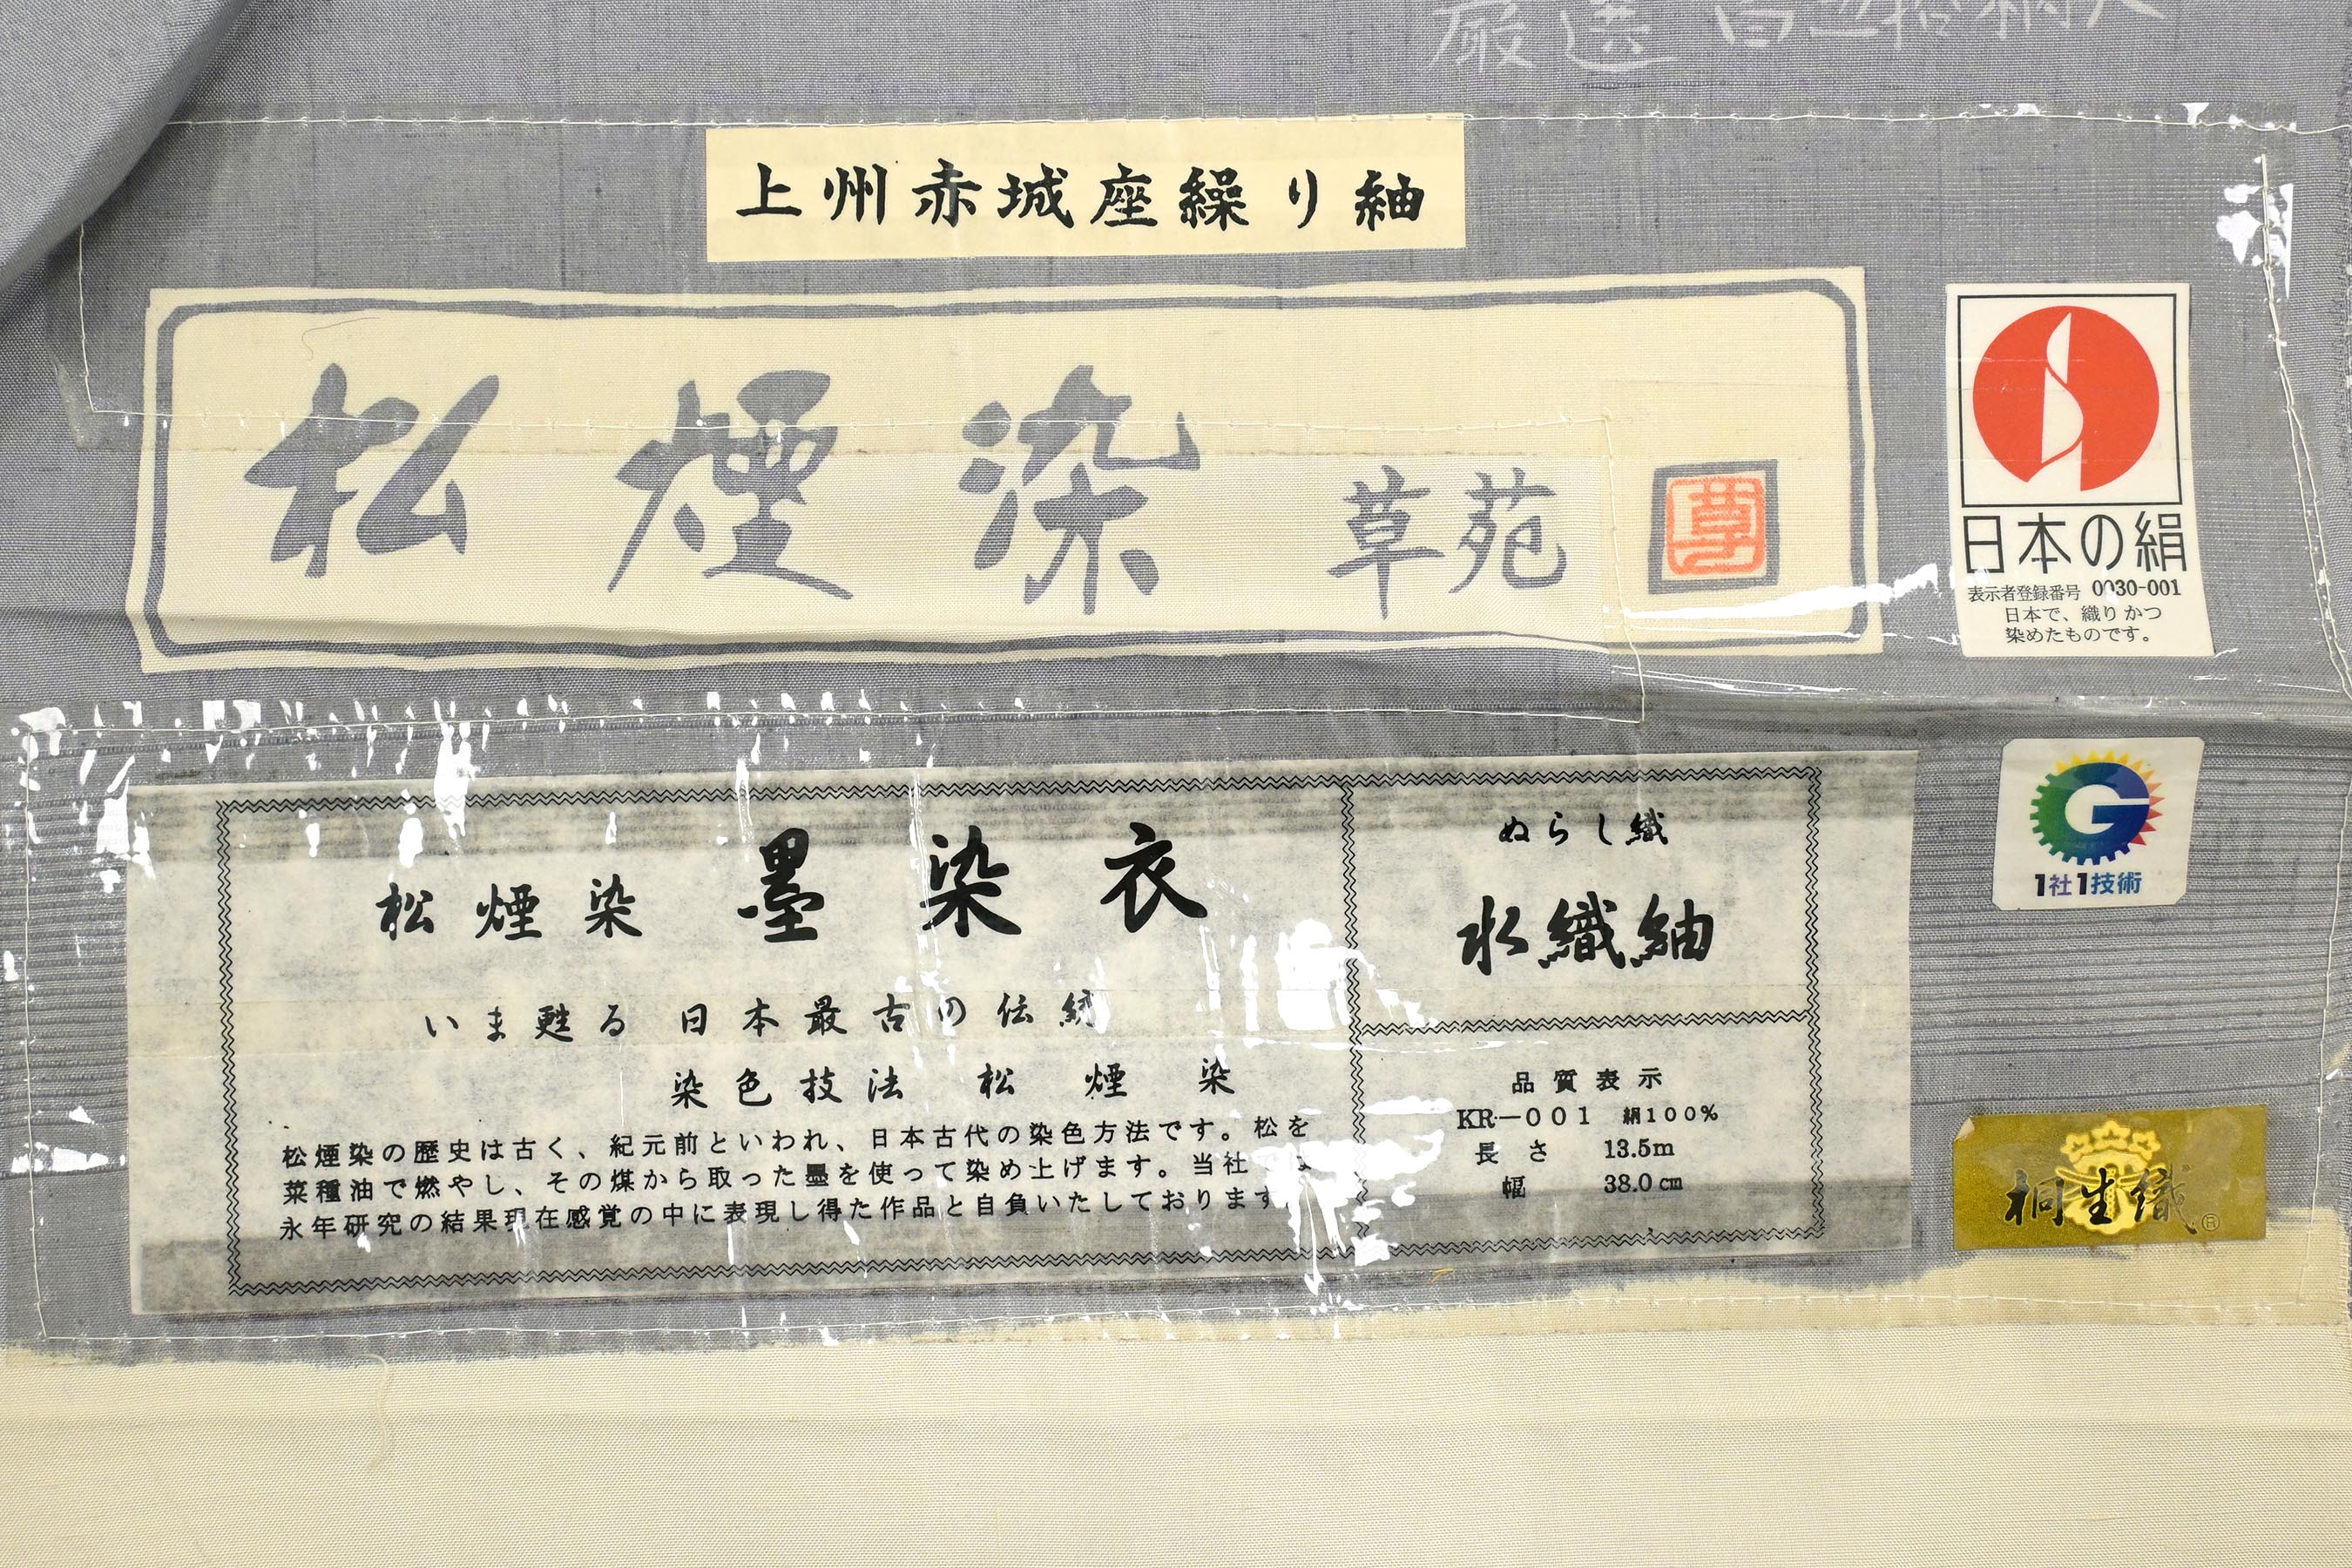 厳選
上州赤城座繰り紬
松煙染 草苑
日本の絹
表示者登録番号 0030-001
日本で、織りかつ
染めたものです。
松煙染 墨染衣
いま甦る 日本最古の伝統
染色技法 松煙染
松煙染の歴史は古く、紀元前といわれ、日本古代の染色方法です。松を
菜種油で燃やし、その煤から取った墨を使って染め上げます。当社では
永年研究の結果現在感覚の中に表現し得た作品と自負いたしております。
ぬらし織
水織紬
品質表示
KR-001 絹100%
長さ 13.5m
幅 38.0cm
G
1社1技術
桐生織®